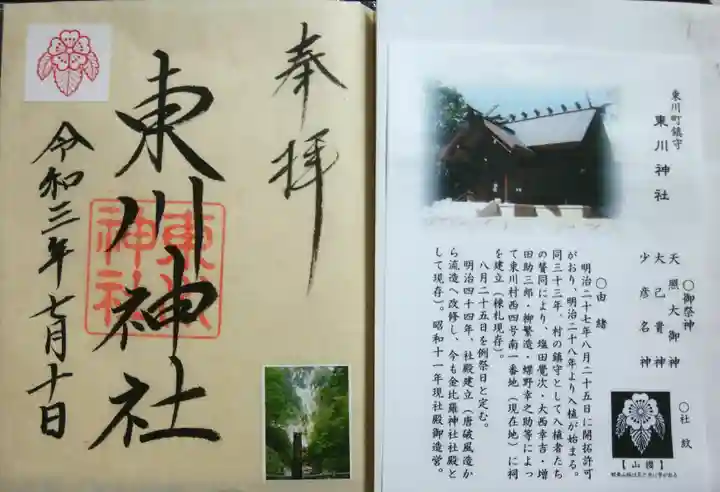 奉拝
東川神社
東川神社
令和三年七月十日
東川町鎮守
東川神社
〇御祭神
天照大御神
大己貴神
少彦名神
〇社紋
【山櫻】
〇由緒
明治二十七年八月二十五日に開拓許可
がおり、明治二十八年より入植が始まる。
同三十三年、村の鎮守として入植者たち
の賛同により、塩田覺次・大西幸吉・増
田助三郎・柳繁造・蝶野幸之助等によっ
て東川村西四号南一番地（現在地）に祠
を建立（棟札現存）。
八月二十五日を例祭日と定む。
明治四十四年、社殿建立（唐破風造か
ら流造へ改修し、今も金比羅神社社殿と
して現存）。昭和十一年現社殿御造営。